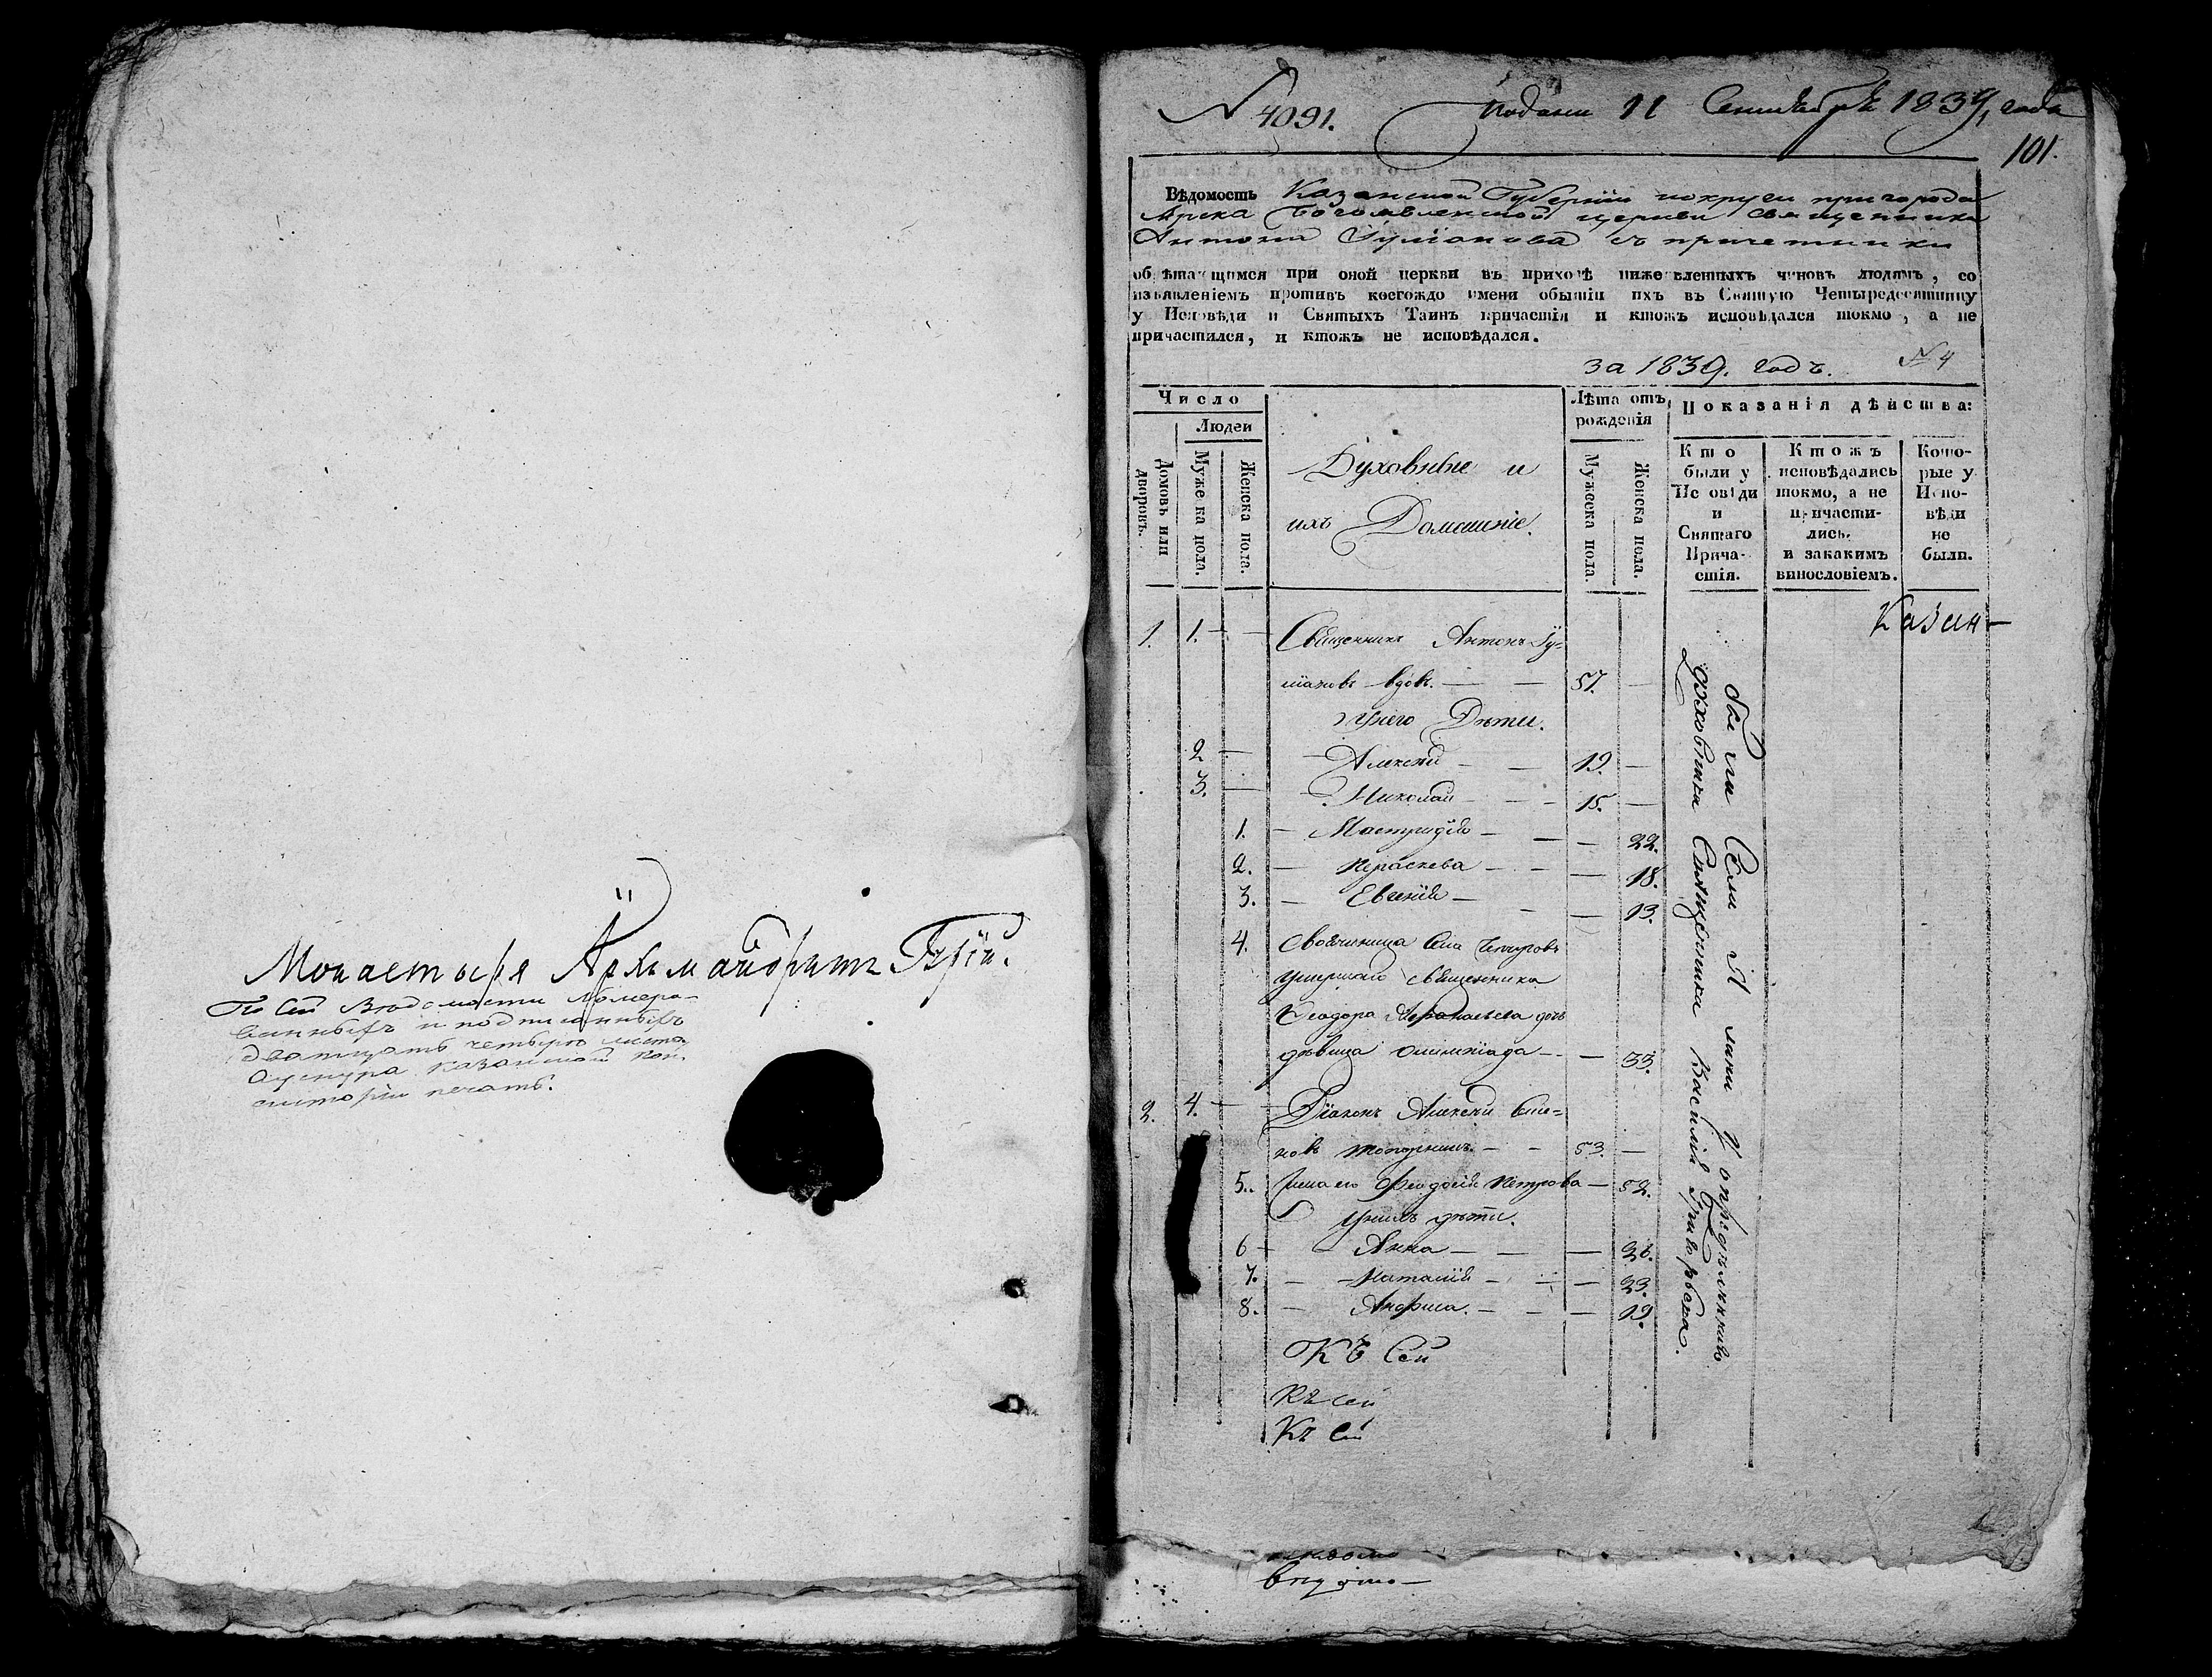 Монастыря Архимандритъ Гурій.
По сей Ведомости номеро-
ванныхъ и подписанныхъ
дватцать четыре листа
а у снура Казанской Кон-
систоріи печать.
N 4091. Подани 11 Сентября 1839, года
101.
Вѣдомость Казанской Губерніи округи пригорода
Арска Богоявленской церкви священника
Антона Гуліанова съ причетники
обрѣтающимся при оной церкви въ приходѣ нижеявленныхъ чиновъ людямъ, со
изъявленіемъ противъ коегождо имени бытіи ихъ въ Святую Четыредесятницу
у Исповѣди и Святыхъ Таинъ причастія и ктожъ исповѣдался токмо, а не
причастился, и ктожъ не исповѣдался.
за 1839. годъ. №4
Число
Людей
Домовъ или дворовъ.
Мужеска пола.
Женска пола.
Духовные и
ихъ Домашніе.
Лѣта отъ рожденія
Мужеска пола.
Женска пола.
Показанія дѣйства:
Кто были у Исповѣди и Святаго Причастія.
Ктожъ исповѣдались токмо, а не причастились. и закакимъ винословіемъ.
Которые у Исповѣди не были.
Казан-
1. 1. Священникъ Антонъ Гу-
ліановъ вдовъ. 57.
у него Дѣти.
2 Алексей 19.
3. Николай 15.
1. Мастридія 22.
2. Параскева 18.
3. Евгенія 13.
4. Своячиница села
умершаго священника
Феодора Афанасьева дочь
дѣвица Олимпіада 33.
2. 4. Діаконъ Алексей Симе-
новъ 53.
5. Жена его Феодосія Петрова 52.
у нихъ дѣти.
6 Анна 26.
7. Наталія 23.
8. Анфиса. 19.
были Семи
духовника Священника Василія Григорьева.
Къ Сей
Къ сей
Къ Сей